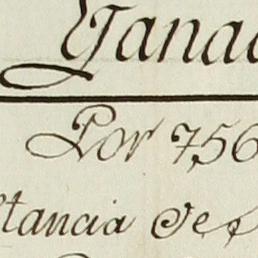 Ganad
Por 756
stancia de